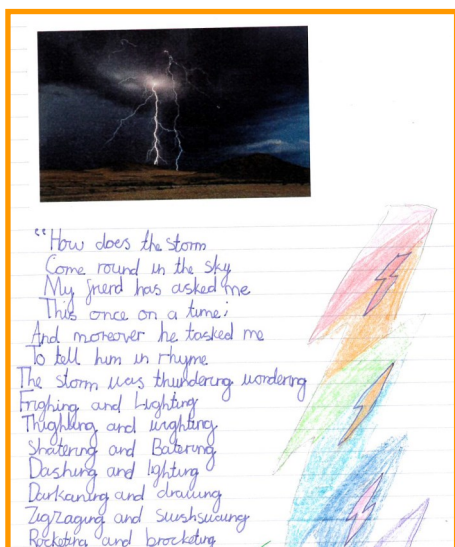 "How does the storm
Come round in the sky
My frierd has asked me
This once on a time;
And moreover he tasked me
To tell him in rhyme
The storm was thundering wondering
Frighing and Lighting
Thighling and
Shatering and Batering
Dashing and lighting
Darkaning and
Zigzaging and
Rocketing and brocketing